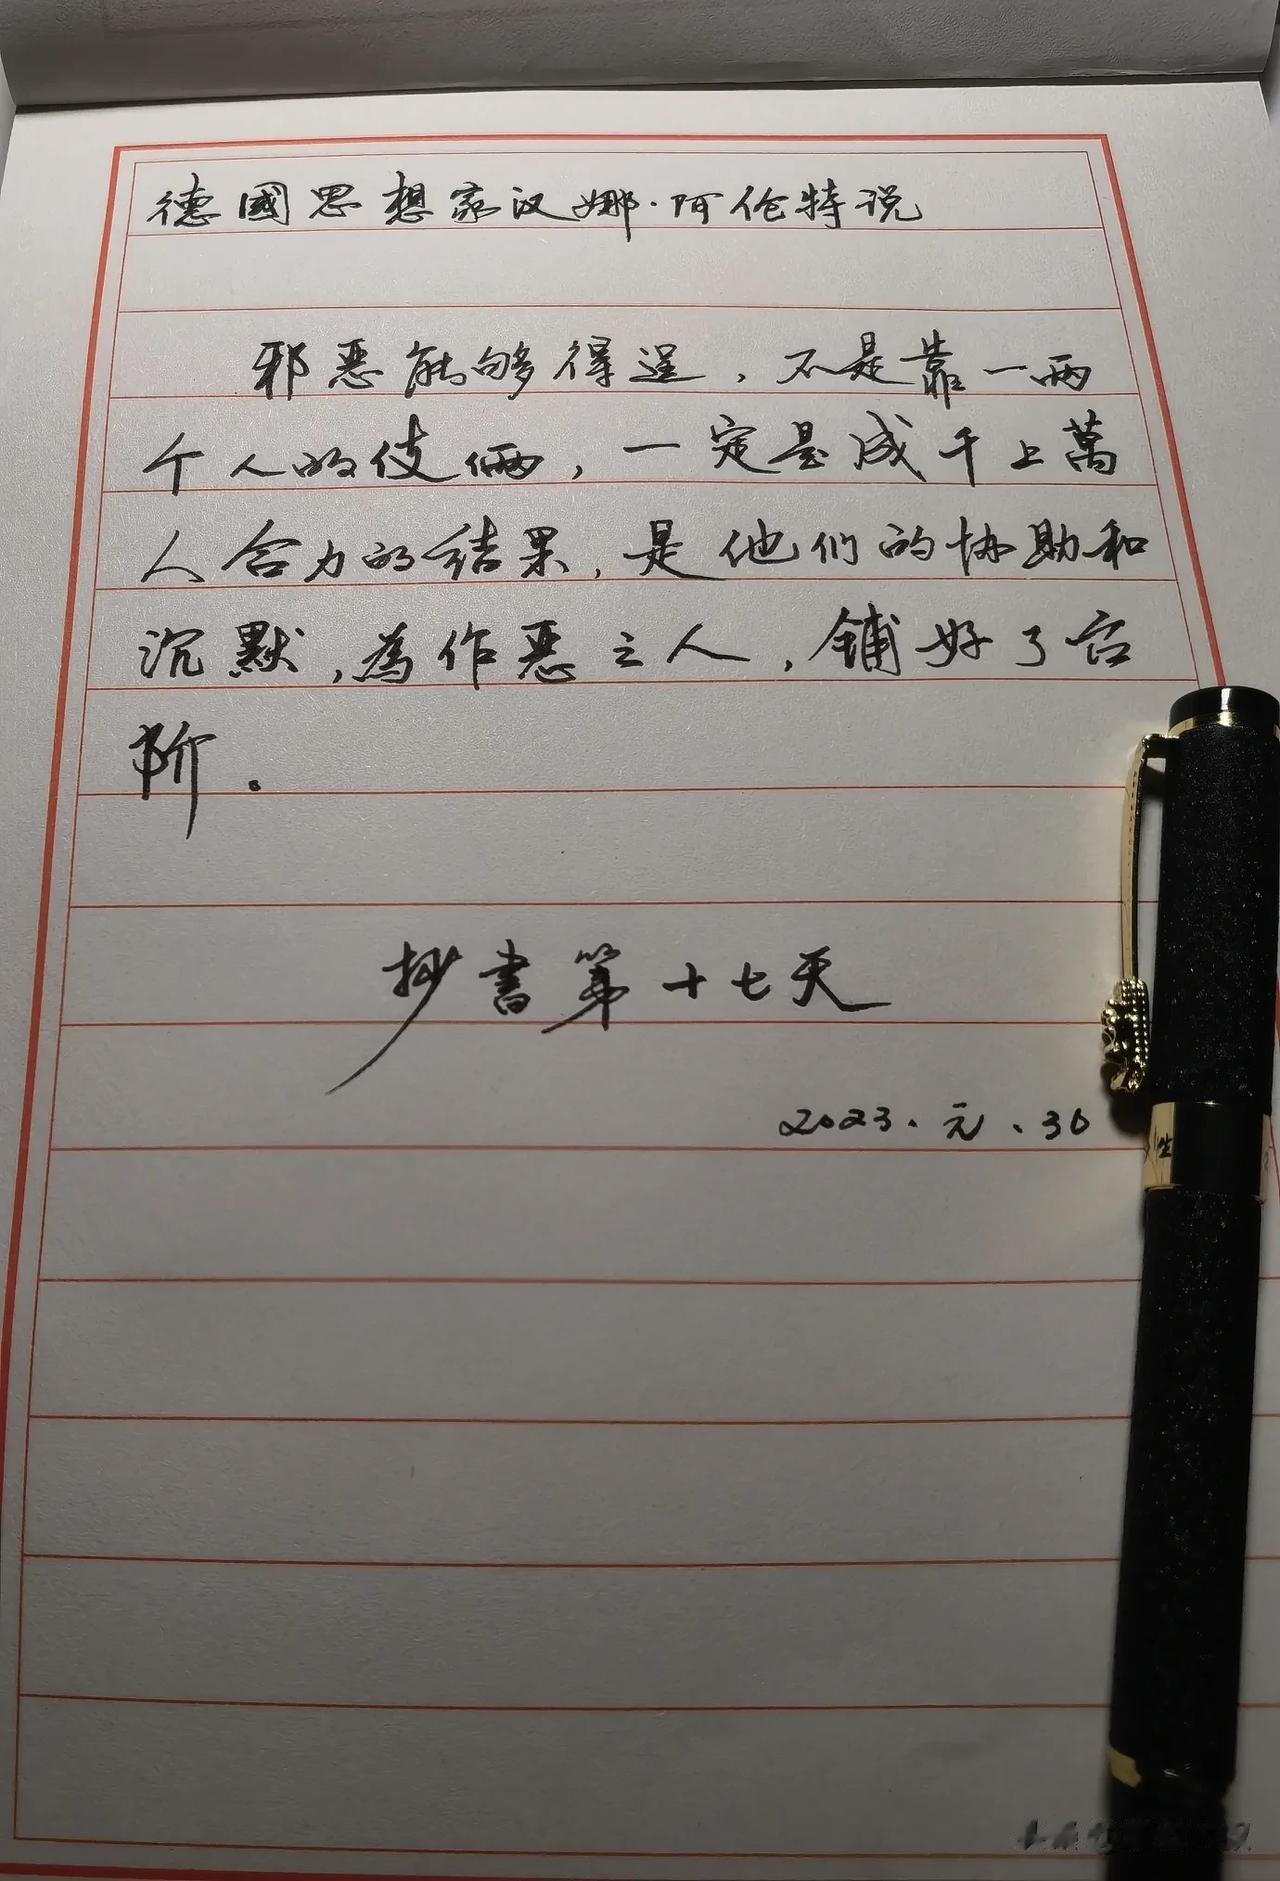 德國思想家汉娜·阿伦特说
邪恶能够得逞，不是靠一两
个人的伎俩，一定是成千上萬
人合力的结果，是他们的协助和
沉默，為作恶之人，铺好了台
阶。
抄書第十七天
2023.元.30